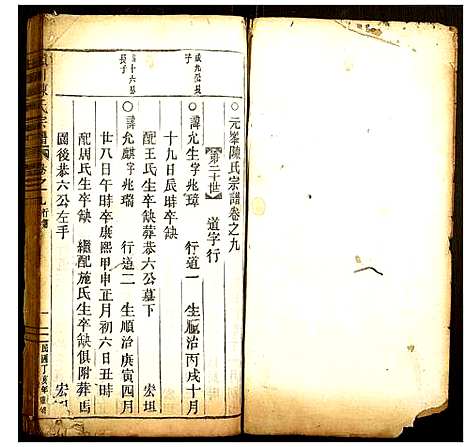 元峯陳氏宗譜卷之九
第三十世 道字行
咸九公長子
諱允生字兆璋 行道一 生順治丙戌十月
十九日辰時卒缺
配王氏生卒缺葬恭六公墓下 宏坦
十六公長子
諱允麒字兆瑞 行道二 生順治庚寅四月
廿八日午時卒康熙甲申正月初六日丑時
配居氏生卒缺 繼配施氏生卒缺俱附葬馬
園後恭六公左手 宏
陳氏宗譜 卷之九 行傳 一 民國丁亥年